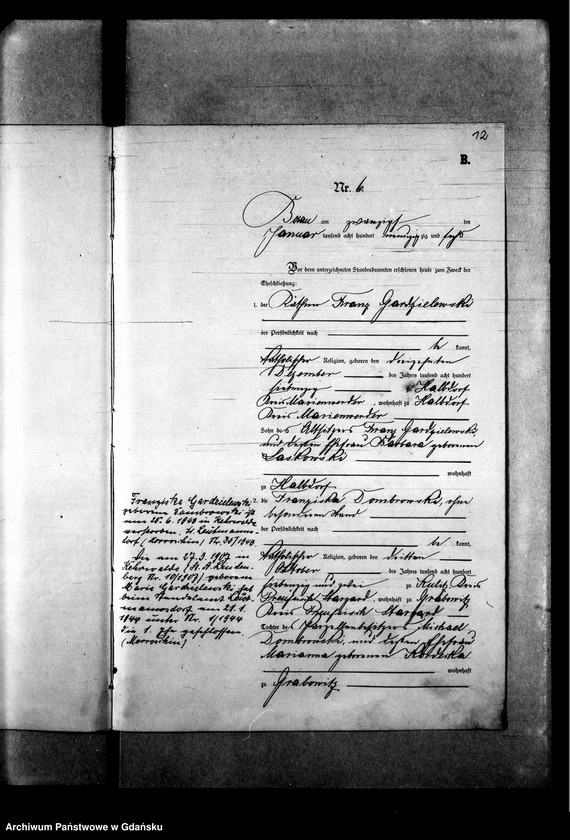 12
B.
Nr. 6.
Bobau am zwanzigsten
Januar tausend acht hundert neunzig und sechs
Vor dem unterzeichneten Standesbeamten erschienen heute zum Zweck der
Eheschließung:
1. der Franz Gardzielewski
der Persönlichkeit nach
be kannt,
katholischer Religion, geboren den dreizehnten
Dezember des Jahres tausend acht hundert
siebenzig zu Halbdorf
Kreis Marienwerder, wohnhaft zu Halbdorf
Kreis Marienwerder
Sohn des Altsitzers Franz Gardzielewski,
und dessen Ehefrau Barbara geborenen
Laskowski
wohnhaft
zu Halbdorf
2. die Franziska Dombrowski, ohne
besonderen Stand
der Persönlichkeit nach
be kannt,
katholischer Religion, geboren den dritten
Oktober des Jahres tausend acht hundert
siebenzig und zu Kreis
Preußisch Stargard, wohnhaft zu Grabowitz
Kreis Preußisch Stargard
Tochter des Parzellenbesitzers Michael
Dombrowski, und dessen Ehefrau
Marianna geborenen
wohnhaft
zu Grabowitz
Franziska Gardzielewski
geborene Dombrowski ist
am 25.6.1943 in Kehrwalde
verstorben,
dorf Nr. 30/1943
Die am 27.3.1907 in
Kehrwalde (St. A.
berg Nr. 10/1907) geborene
Marie Gardzielewski hat
beim Standesamt
mannsdorf am 29.1.
1944 unter Nr. 1/1944
die 1. Ehe geschlossen
Archiwum Państwowe w Gdańsku